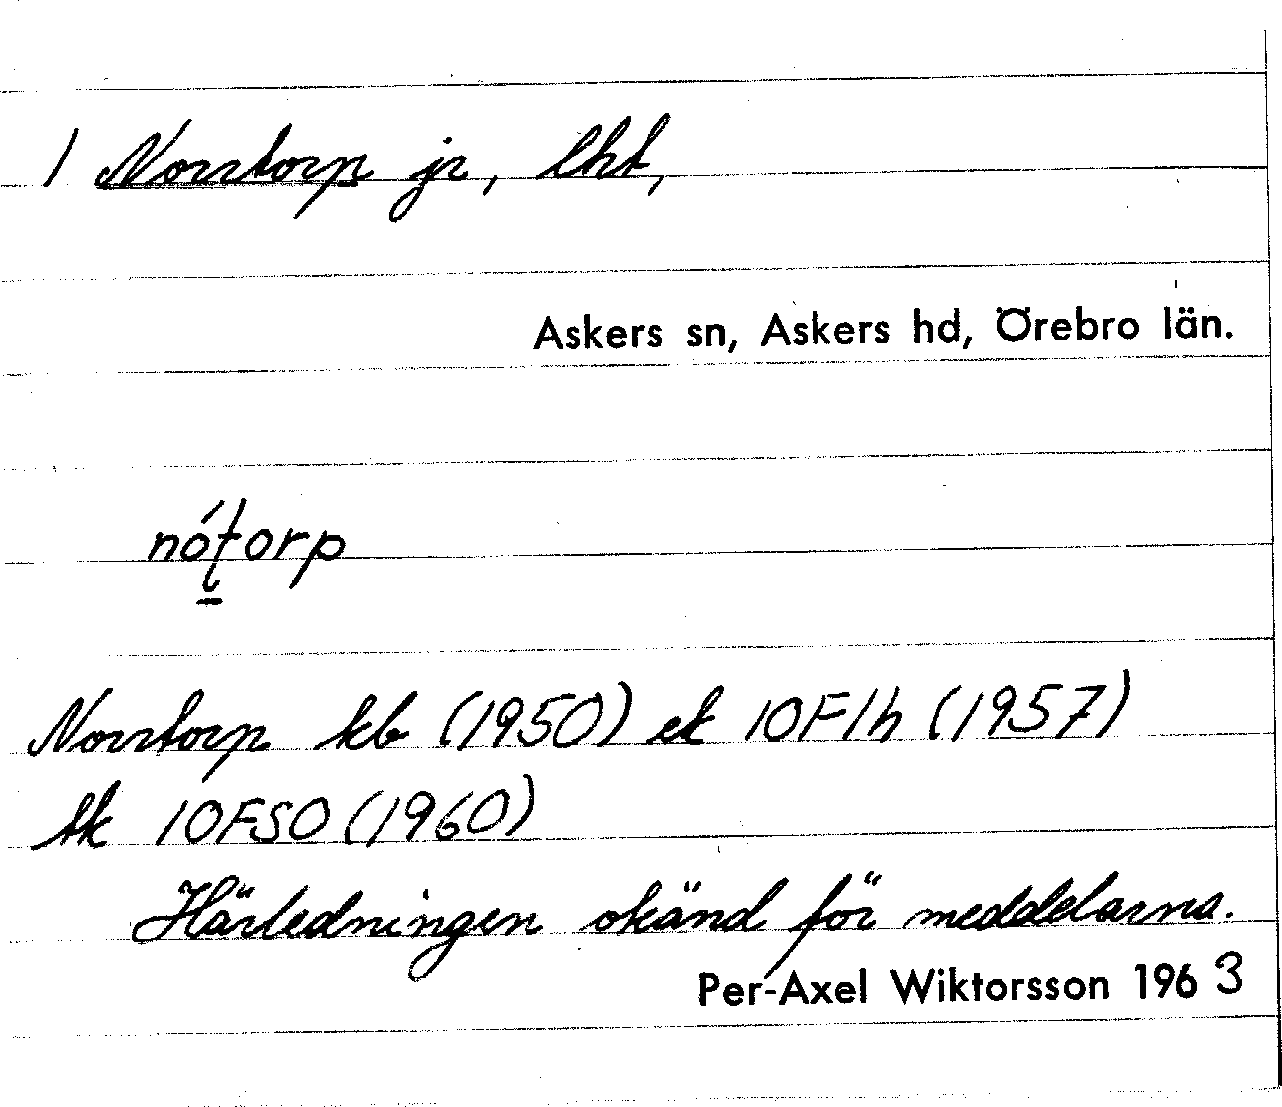 1 Norrtorp jr, lht,
Askers sn, Askers hd, Örebro län.
nó̱ţorp
Norrtorp kb (1950) ek 10F1h (1957)
tk 10FSO (1960)
Härledningen okänd för meddelarna.
Per-Axel Wiktorsson 1963